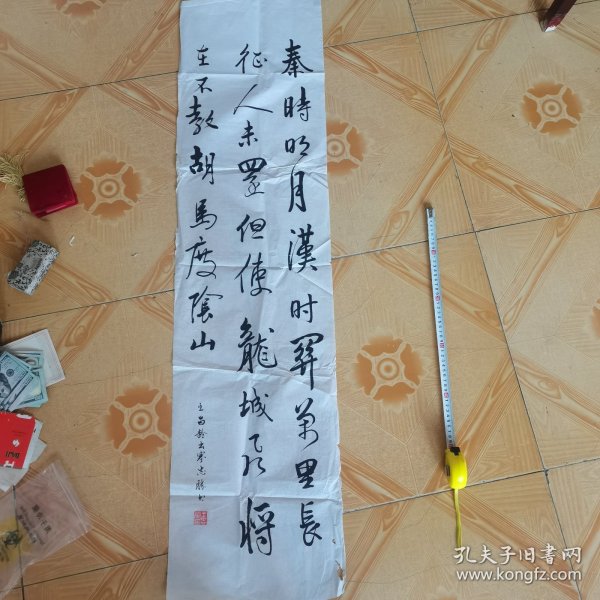 秦時明月漢时關萬里長
征人未還但使龍城飛將
在不教胡馬度陰山
王昌齡出塞
孔夫子旧书网
www.kongfz.com